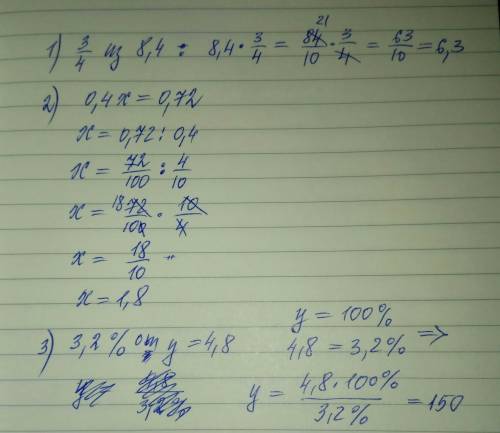 1) 3/4 из 8,4 : 8,4 · 3/4 = 84/10 · 3/4 = 63/10 = 6,3
21
2) 0,4x = 0,72
x = 0,72 : 0,4
x = 72/100 : 4/10
x = 18 72/100 · 10/4
x = 18/10
x = 1,8
3) 3,2% от y = 4,8
y = 100%
4,8 = 3,2% =>
y = 4,8·100%/3,2% = 150